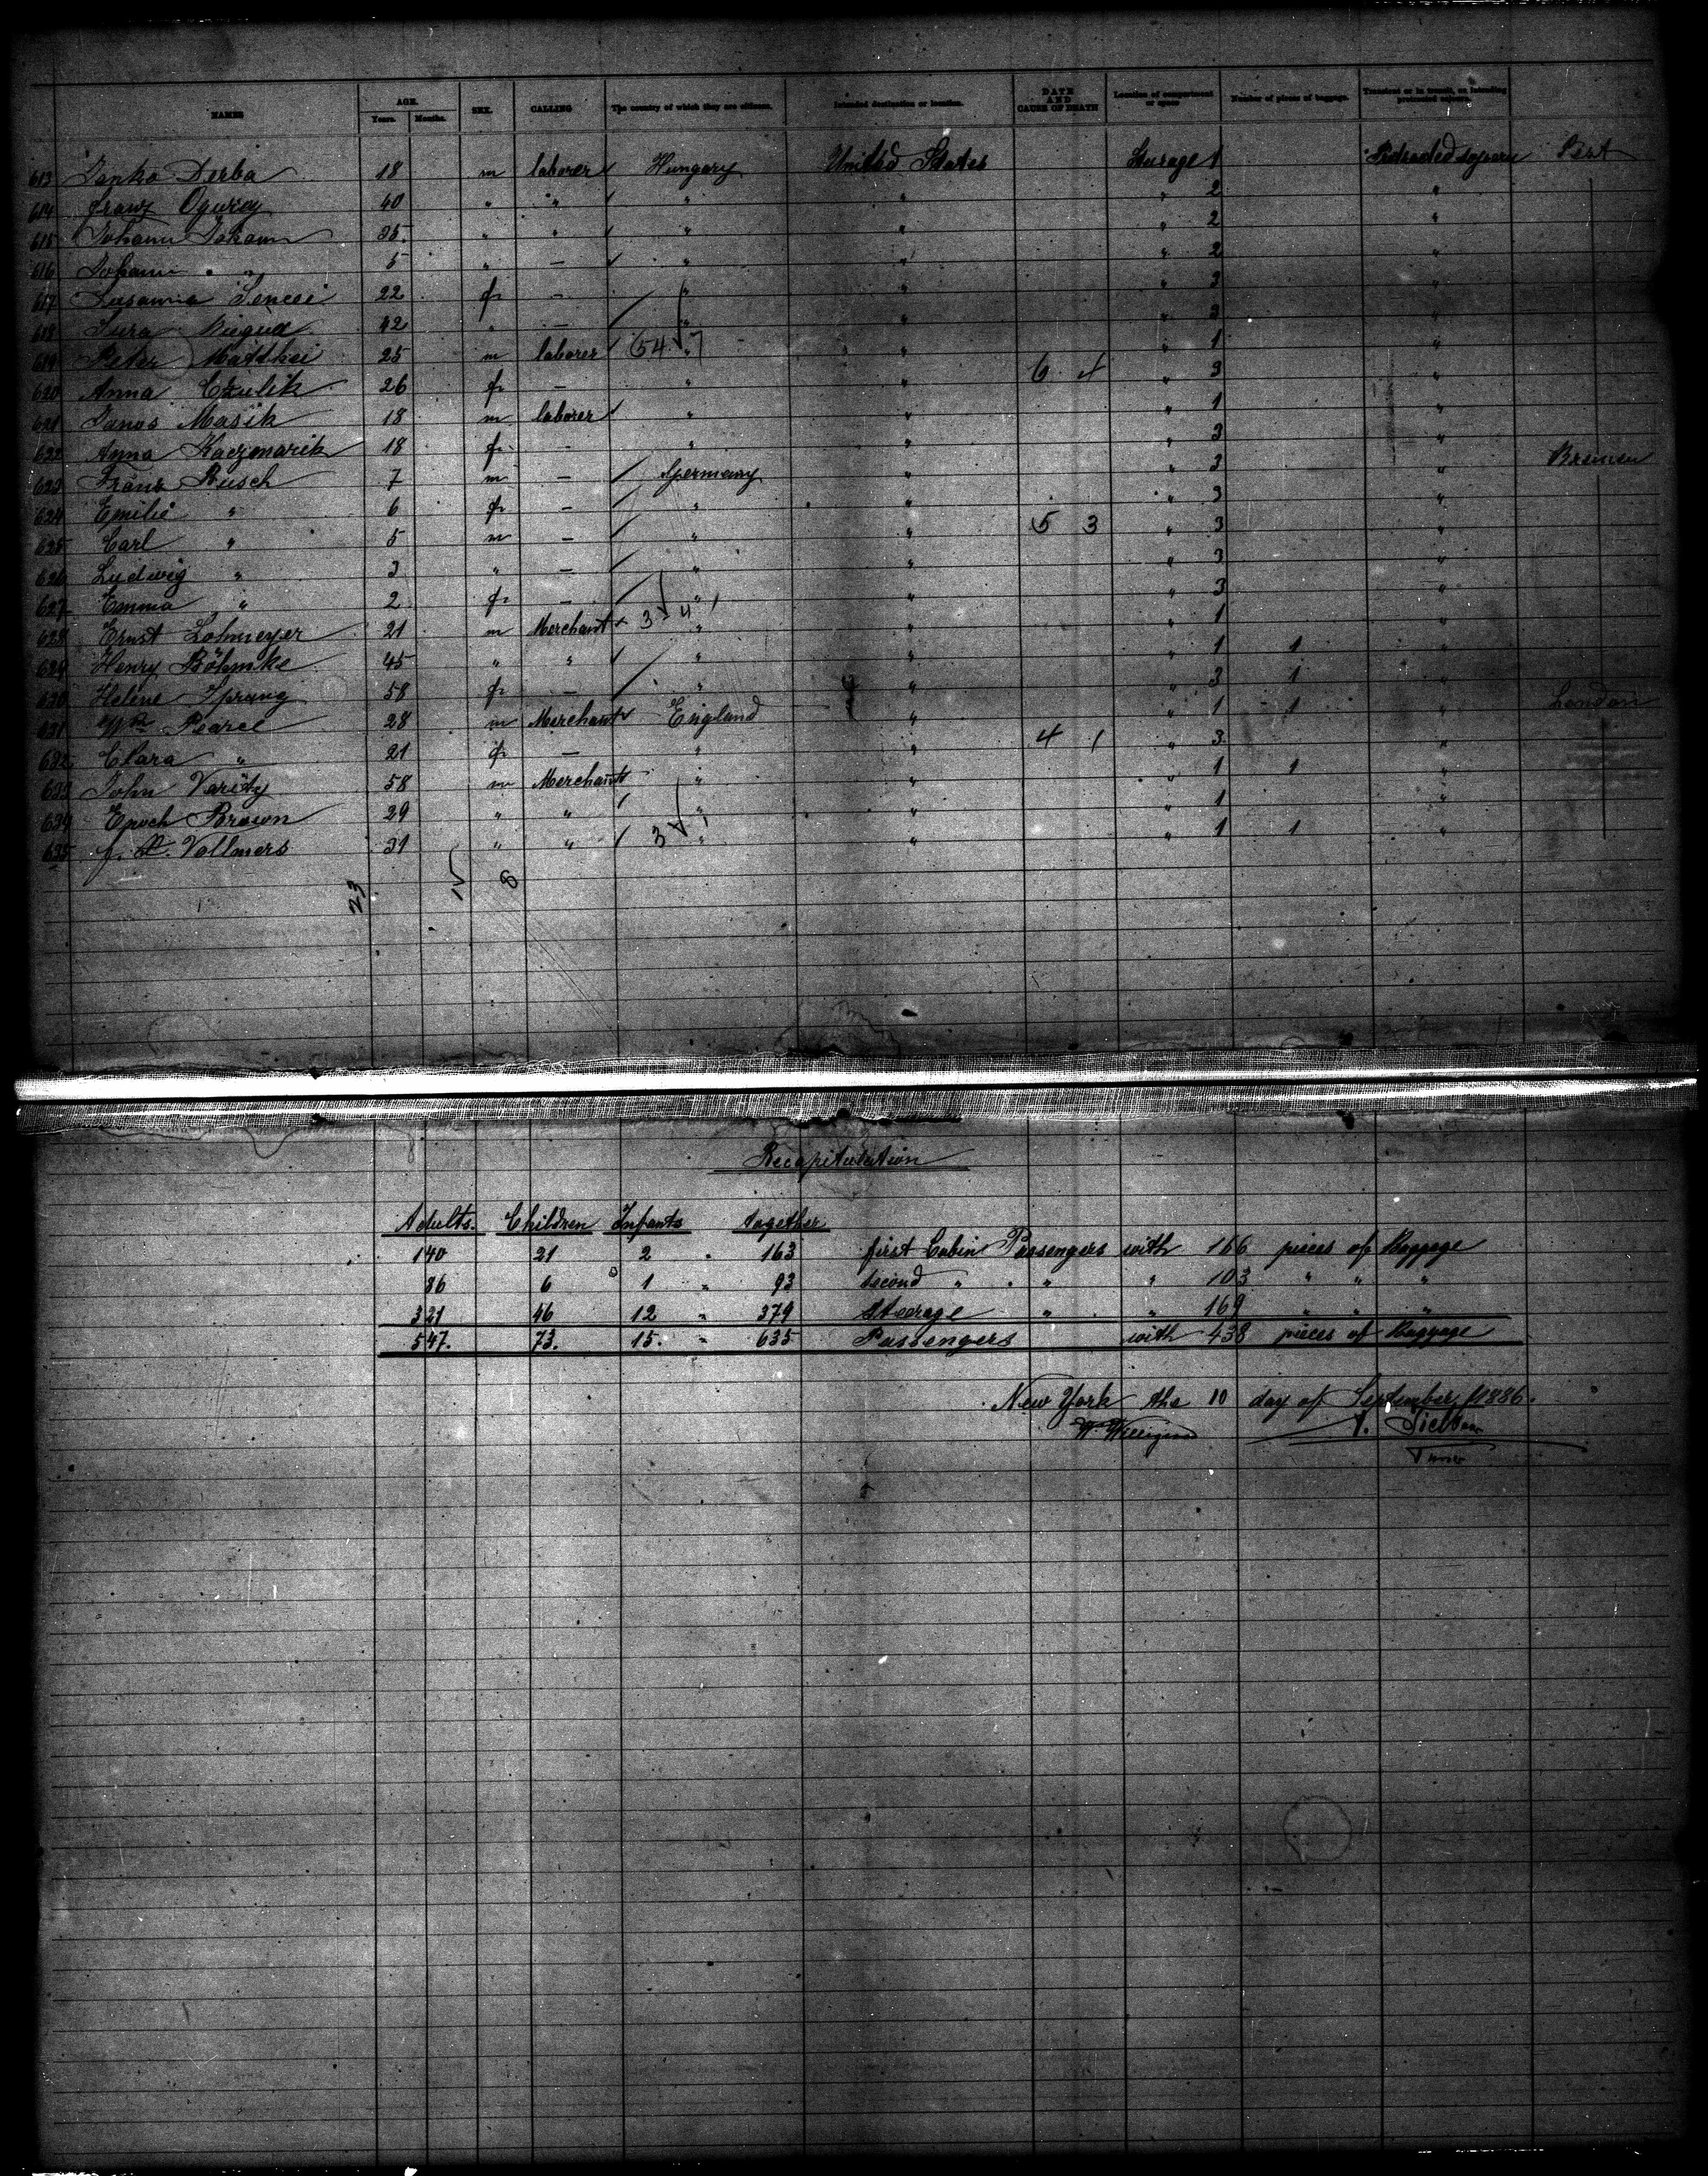 NAMES AGE. Years. Months. SEX. CALLING The country of which they are citizens. Intended destination or location. DATE AND CAUSE OF DEATH Location of compartment or space Number of pieces of baggage. Transient or in transit, or intending protracted sojourn.
613 Janko Derba 18 m laborer Hungary United States Steerage 1 Protracted sojourn
614 Franz 40 " " " " " 2 "
615 Johann 35 " " " " " 2 "
616 Johann " 5 " — " " " 2 "
617 Susanna 22 f — " " " 3 "
618 42 " — " " " 3 "
619 Peter Matthei 25 m laborer 54 7 " " " 1 "
620 Anna Czulik 26 f — " " 6 4 " 3 "
621 Janos Masik 18 m laborer " " " 1 "
622 Anna Kaczmarik 18 f — " " " 3 "
623 Franz Busch 7 m — Germany " " 3 " Bremen
624 Emilie " 6 f — " " " 3 "
625 Carl " 5 m — " " 5 3 " 3 "
626 Ludwig " 3 " — " " " 3 "
627 Emma " 2 f — " " " 3 "
628 Ernst Lohmeyer 21 m Merchant 3 4 1 " " " 1 "
629 Henry Böhmke 45 " " " " " 1 1 "
630 Helene Sprung 58 f — " " " 3 1 "
631 Wm Pearce 28 m Merchant England " " 1 1 " London
632 Clara " 21 f — " " 4 1 " 3 "
633 John Varity 58 m Merchant " " " 1 1 "
634 Enoch Brown 29 " " " " " 1 "
635 Vollmers 31 " " 3 " " " 1 1 "
23 15 8
Recapitulation
Adults. Children Infants together
140 21 2 " 163 first Cabin Passengers with 166 pieces of Baggage
86 6 1 " 93 second " " " 103 " " "
321 46 12 " 379 Steerage " " 169 " " "
547. 73. 15. " 635 Passengers with 438 pieces of Baggage
New York the 10 day of September 1886.